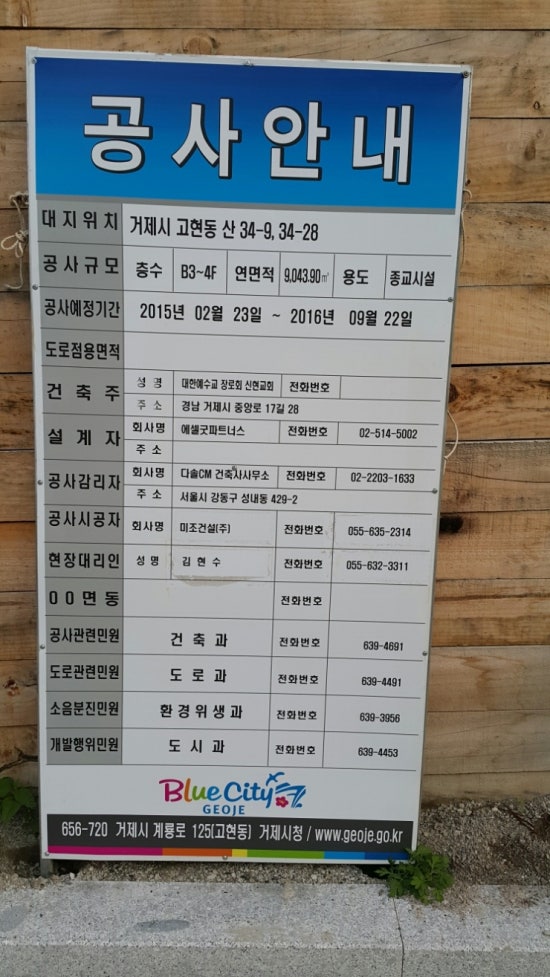 공사안내
대지위치 거제시 고현동 산 34-9, 34-28
공사규모 층수 B3~4F 연면적 9,043.90㎡ 용도 종교시설
공사예정기간 2015년 02월 23일 ~ 2016년 09월 22일
도로점용면적
건축주 성명 대한예수교 장로회 신현교회 전화번호
주소 경남 거제시 중앙로 17길 28
설계자 회사명 에쎌굿파트너스 전화번호 02-514-5002
주소
공사감리자 회사명 다솔CM 건축사사무소 전화번호 02-2203-1633
주소 서울시 강동구 성내동 429-2
공사시공자 회사명 미조건설(주) 전화번호 055-635-2314
현장대리인 성명 김현수 전화번호 055-632-3311
00면동 전화번호
공사관련민원 건축과 전화번호 639-4691
도로관련민원 도로과 전화번호 639-4491
소음분진민원 환경위생과 전화번호 639-3956
개발행위민원 도시과 전화번호 639-4453
Blue City
GEOJE
656-720 거제시 계룡로 125(고현동) 거제시청 / www.geoje.go.kr